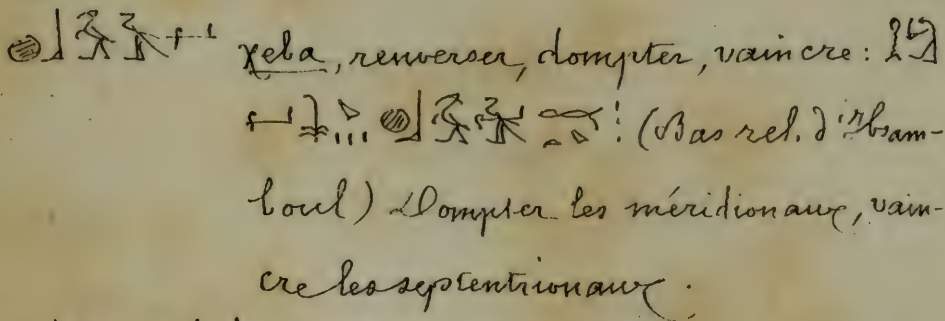 χeba, renverser, dompter, vaincre:
(Bas rel. d'Ibsam-
boul) Dompter les méridionaux, vain-
cre les septentrionaux.